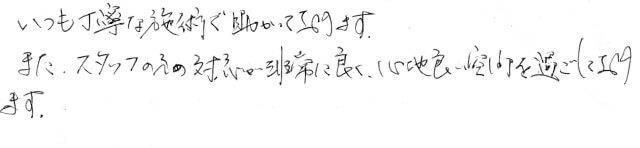 いつも丁寧な施術で助かっております。
また、スタッフの対応が非常に良く、心地良い空間を過ごしており
ます。